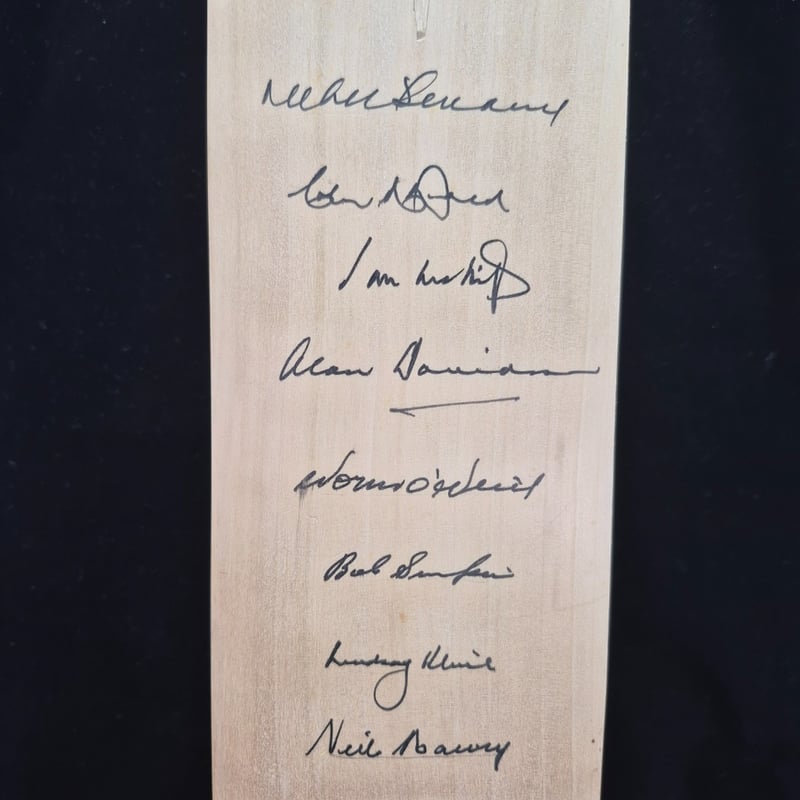 Richie Benaud
Colin McDonald
Ian Meckiff
Alan Davidson
Norm O'Neill
Bob Simpson
Lindsay Kline
Neil Harvey